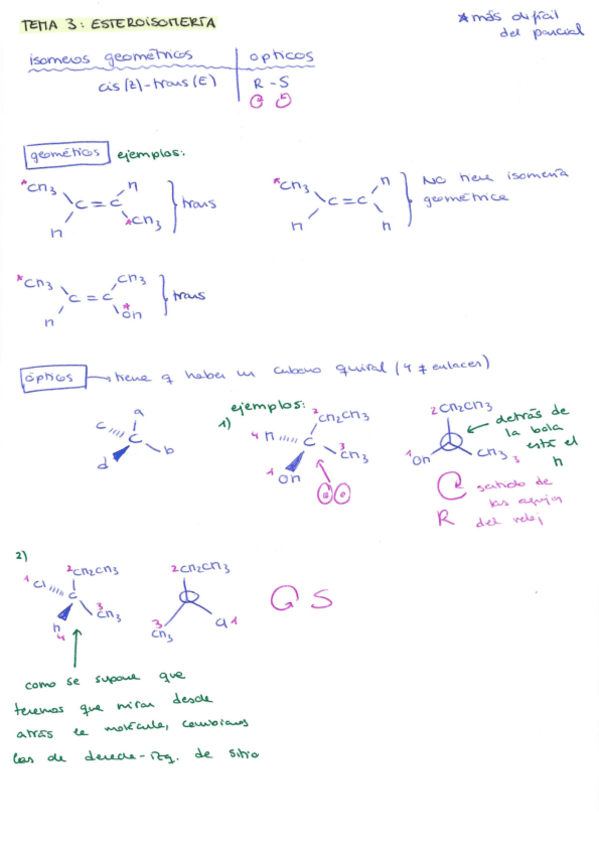 TEMA 3: ESTEROISOMERÍA
*más difícil
del parcial
isomeros geométricos | ópticos
cis(Z)-trans(E) | R - S
geométricos ejemplos:
*CH3 H
C = C } trans
H *CH3
*CH3 H
C = C } NO tiene isomería
geométrica
H H
*CH3 CH3
C = C } trans
H *OH
ópticos → tiene q haber un carbono quiral (4 ≠ enlaces)
a
c C b
d
ejemplos:
1)
2 CH2CH3
4 H C 3 CH3
1 OH
2 CH2CH3
1 OH CH3 3
detrás de
la bola
está el
H
sentido de
las agujas
R del reloj
2)
2 CH2CH3
1 Cl C 3 CH3
H 4
2 CH2CH3
3 CH3 Cl 1
S
como se supone que
tenemos que mirar desde
atrás la molécula, cambiamos
los de derecha-izq. de sitio